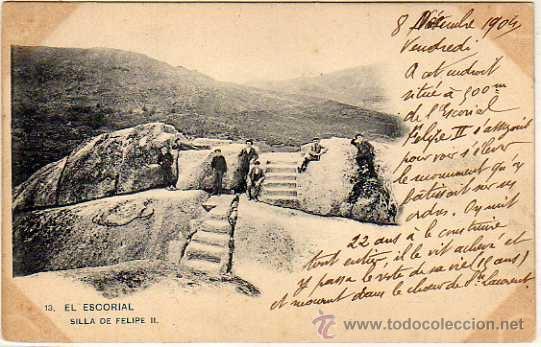 8 Décembre 1904
Vendredi
A cet endroit
situé à 500m
de l'Escorial
Felipe II s'asseyait
pour voir s'élever
le monument qu'y
bâtissait sur ses
ordres. On mit
22 ans à le construire
tout entier, il le vit achevé et
y passa le reste de sa vie (14 ans)
et mourut dans le chœur de St Laurent
13. EL ESCORIAL
SILLA DE FELIPE II.
todocoleccion
www.todocoleccion.net